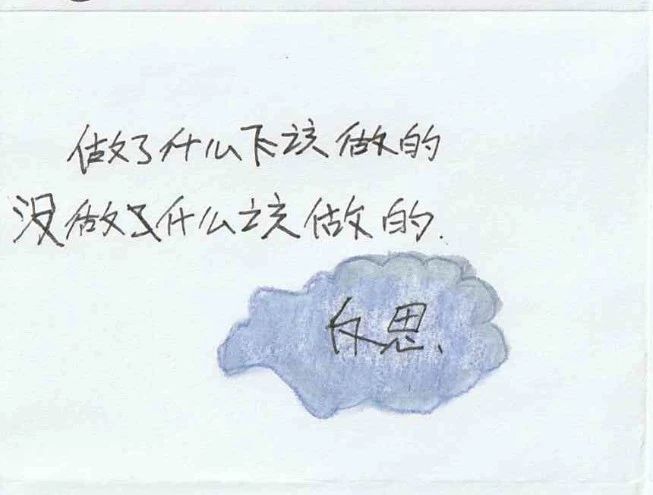 做了什么不该做的
没做了什么该做的.
反思、